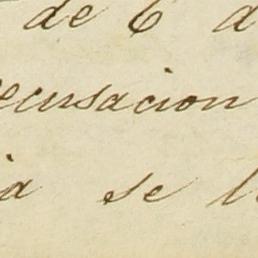 de 6 d
ecusacion
ia se l